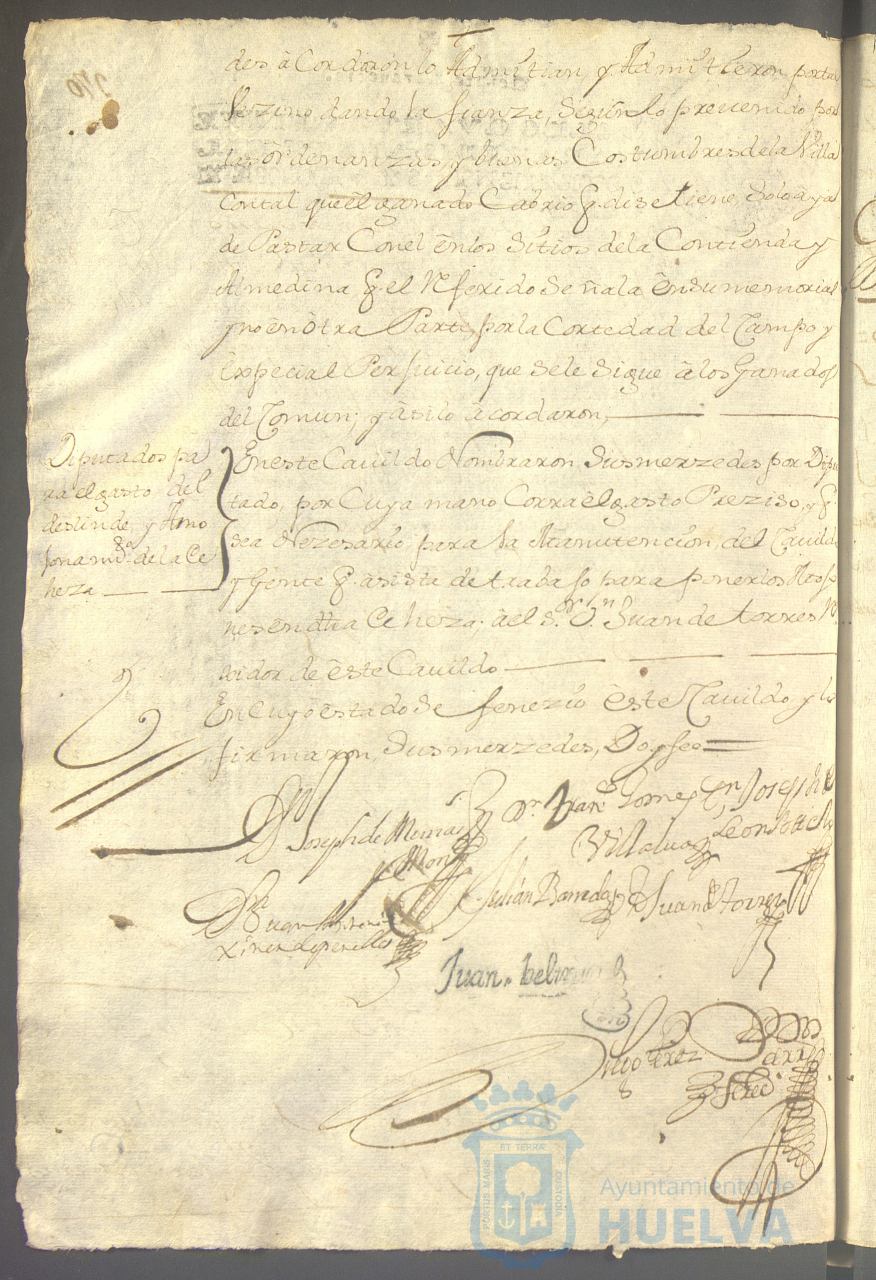 des acordaron lo Admitian, y Admitieron por tal
Vezino, dando la fianza, segun lo preuenido por
las ordenanzas, y buenas Costumbres de la Villa
Con tal que el ganado Cabrio q. dise tiene, solo aya
de Pastar Con el en los sitios de la Contienda y
Almedina q. el Referido señala en su memorial
y no en otra Parte, por la Cortedad del Campo y
especial Perjuicio, que se le sigue a los Ganados
del Comun; y asi lo acordaron,
Diputados pa
ra el gasto del
deslinde, y Amo
jonamto. de la De
heza
En este Cavildo Nombraron sus merzedes por Dipu
tado, por Cuya mano Corra el gasto Prezisso, y q.
sea Nezesario, para la Manutencion, del Cavildo
y Gente q. asista de trabajo para poner los Mojo
nes en dha Deheza; a el sr. Dn. Juan de torres Re
xidor de este Cavildo
En Cuyo estado se fenezio este Cavildo y lo
firmaron, sus merzedes, Doy fee
Dn. Joseph de
Dn. Franco. Gomez
Dn. Joseph de
Villalua
Leon
Julian Barreda
Juan de torres
Dn. Juan Antonio
Juan
Diego Perez
270
ET TERRÆ
PORTUS MARIS
CUSTODIA
Ayuntamiento de
HUELVA